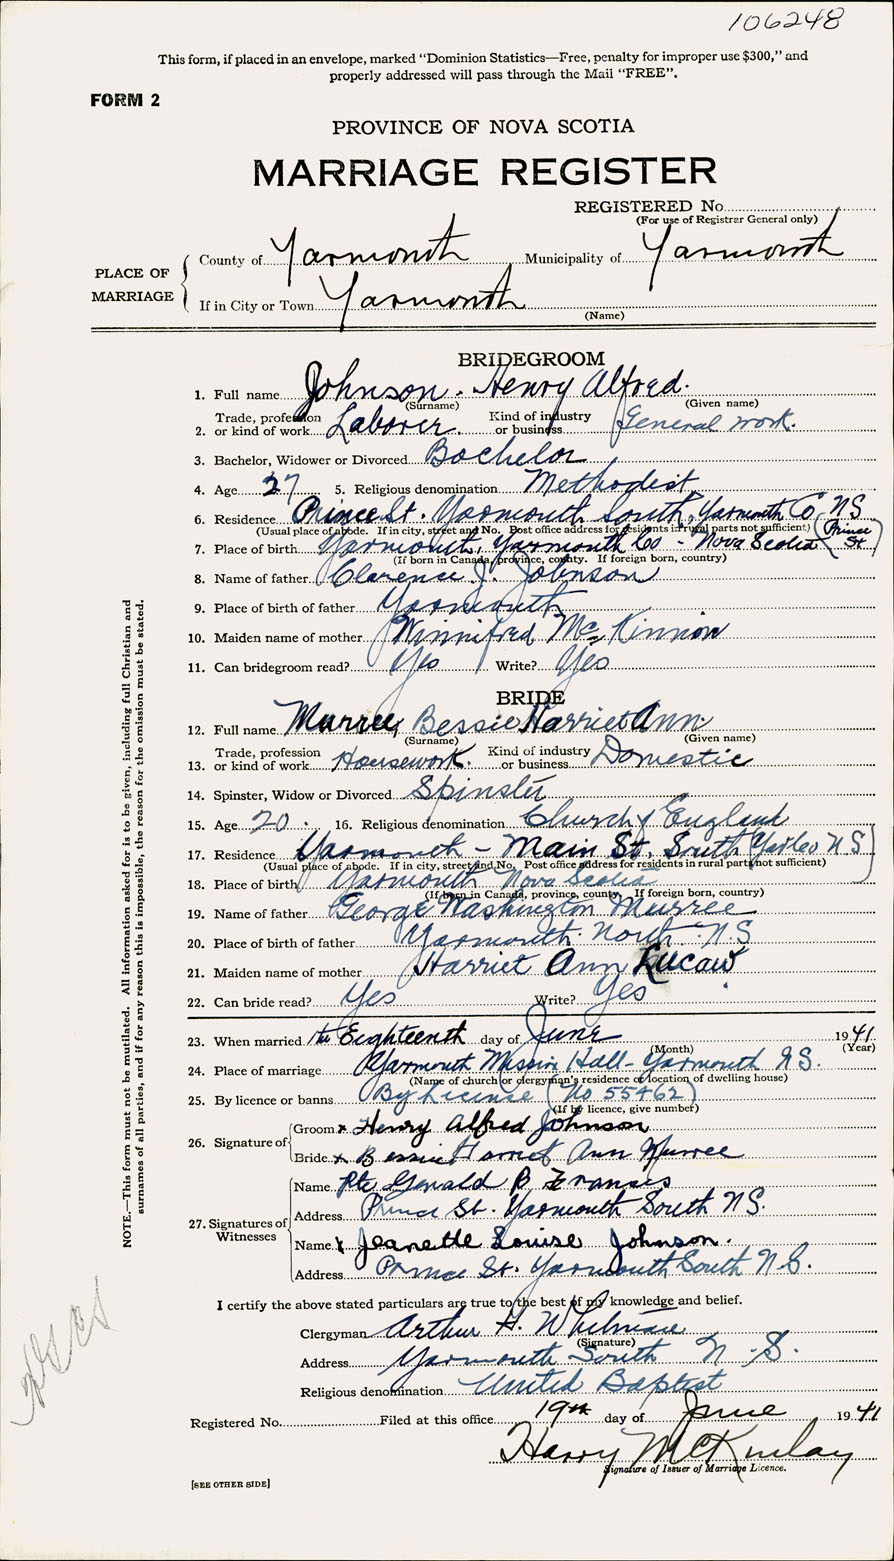 106248
This form, if placed in an envelope, marked "Dominion Statistics—Free, penalty for improper use $300," and
properly addressed will pass through the Mail "FREE".
FORM 2
PROVINCE OF NOVA SCOTIA
MARRIAGE REGISTER
REGISTERED No.
(For use of Registrar General only)
PLACE OF MARRIAGE
County of Yarmouth Municipality of Yarmouth
If in City or Town Yarmouth
(Name)
BRIDEGROOM
1. Full name Johnson - Henry Alfred.
(Surname) (Given name)
2. Trade, profession or kind of work Laborer. Kind of industry or business General work.
3. Bachelor, Widower or Divorced Bachelor
4. Age 27 5. Religious denomination Methodist
6. Residence Prince St. Yarmouth South, Yarmouth Co, NS
(Usual place of abode. If in city, street and No. Post office address for residents in rural parts not sufficient) (Prince St)
7. Place of birth Yarmouth, Yarmouth Co - Nova Scotia
(If born in Canada, province, county. If foreign born, country)
8. Name of father Clarence J. Johnson
9. Place of birth of father Yarmouth
10. Maiden name of mother Winnifred McKinnon
11. Can bridegroom read? Yes Write? Yes
BRIDE
12. Full name Murree, Bessie Harriet Ann.
(Surname) (Given name)
13. Trade, profession or kind of work Housework. Kind of industry or business Domestic
14. Spinster, Widow or Divorced Spinster
15. Age 20. 16. Religious denomination Church of England
17. Residence Yarmouth - Main St. South (Yar Co N S)
(Usual place of abode. If in city, street and No. Post office address for residents in rural parts not sufficient)
18. Place of birth Yarmouth Nova Scotia
(If born in Canada, province, county. If foreign born, country)
19. Name of father George Washington Murree
20. Place of birth of father Yarmouth North N.S
21. Maiden name of mother Harriet Ann
22. Can bride read? Yes Write? Yes
23. When married the Eighteenth day of June 1941
(Month) (Year)
24. Place of marriage Yarmouth Mission Hall - Yarmouth N S.
(Name of church or clergyman's residence or location of dwelling house)
25. By licence or banns By License (No 55462)
(If by licence, give number)
26. Signature of
Groom x Henry Alfred Johnson
Bride x Bessie Harriet Ann Murree
27. Signatures of Witnesses
Name Pte Gerald B Francis
Address Prince St. Yarmouth South N S.
Name x Jeanette Louise Johnson.
Address Prince St. Yarmouth South N.S.
I certify the above stated particulars are true to the best of my knowledge and belief.
Clergyman Arthur H. Whitman
(Signature)
Address Yarmouth South N. S.
Religious denomination United Baptist
Registered No. Filed at this office 19th day of June 1941
Harry McKinlay
Signature of Issuer of Marriage Licence.
[SEE OTHER SIDE]
NOTE.—This form must not be mutilated. All information asked for is to be given, including full Christian and
surnames of all parties, and if for any reason this is impossible, the reason for the omission must be stated.